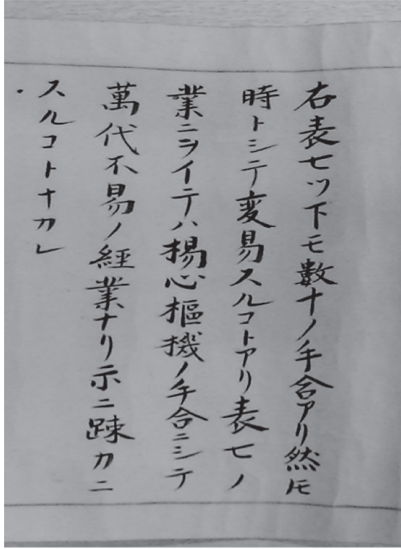 右表七ツ下モ数十ノ手合アリ然𪜈
時トシテ変易スルコトアリ表七ノ
業ニヲイテハ揚心枢機ノ手合ニシテ
萬代不易ノ経業ナリ示ニ踈カニ
スルコトナカレ